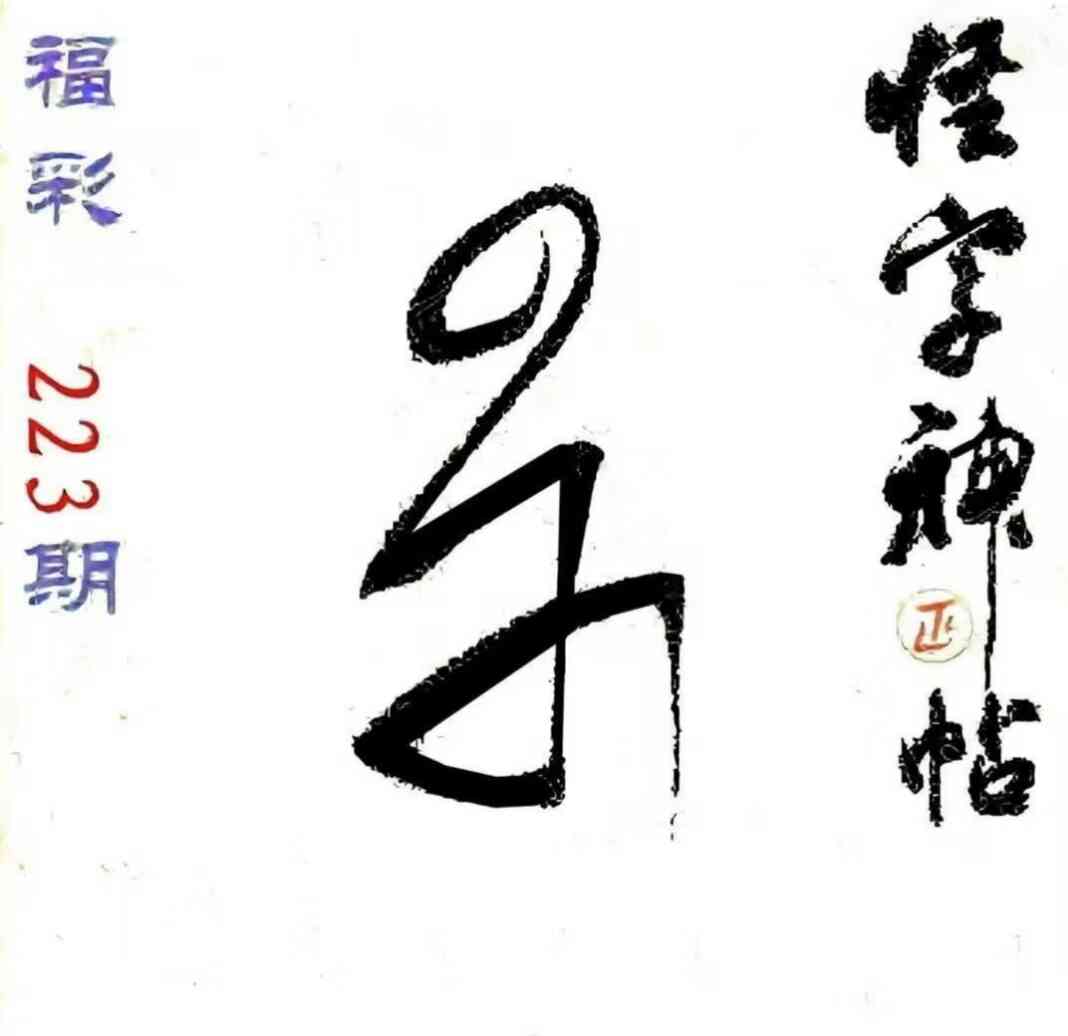 怪字神帖
正
福彩 223期